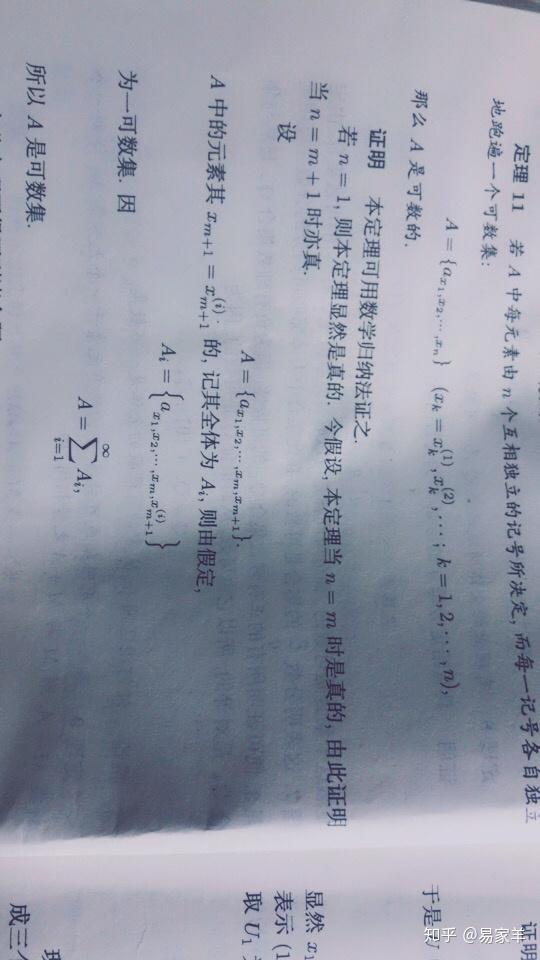 定理 11 若 A 中每元素由 n 个互相独立的记号所决定, 而每一记号各自独立
地跑遍一个可数集:
A = {a_{x_1,x_2,⋯,x_n}} (x_k = x_k^{(1)}, x_k^{(2)}, ⋯; k = 1, 2, ⋯, n),
那么 A 是可数的.
证明 本定理可用数学归纳法证之.
若 n = 1, 则本定理显然是真的. 今假设, 本定理当 n = m 时是真的, 由此证明
当 n = m + 1 时亦真.
设
A = {a_{x_1,x_2,⋯,x_m,x_{m+1}}}.
A 中的元素其 x_{m+1} = x_{m+1}^{(i)} 的, 记其全体为 A_i, 则由假定,
A_i = {a_{x_1,x_2,⋯,x_m,x_{m+1}^{(i)}}}
为一可数集. 因
A = ∑_{i=1}^{∞} A_i,
所以 A 是可数集.
证明
于是
显然 x_1
表示 (1
取 U_1
成三个
知乎 @易家羊